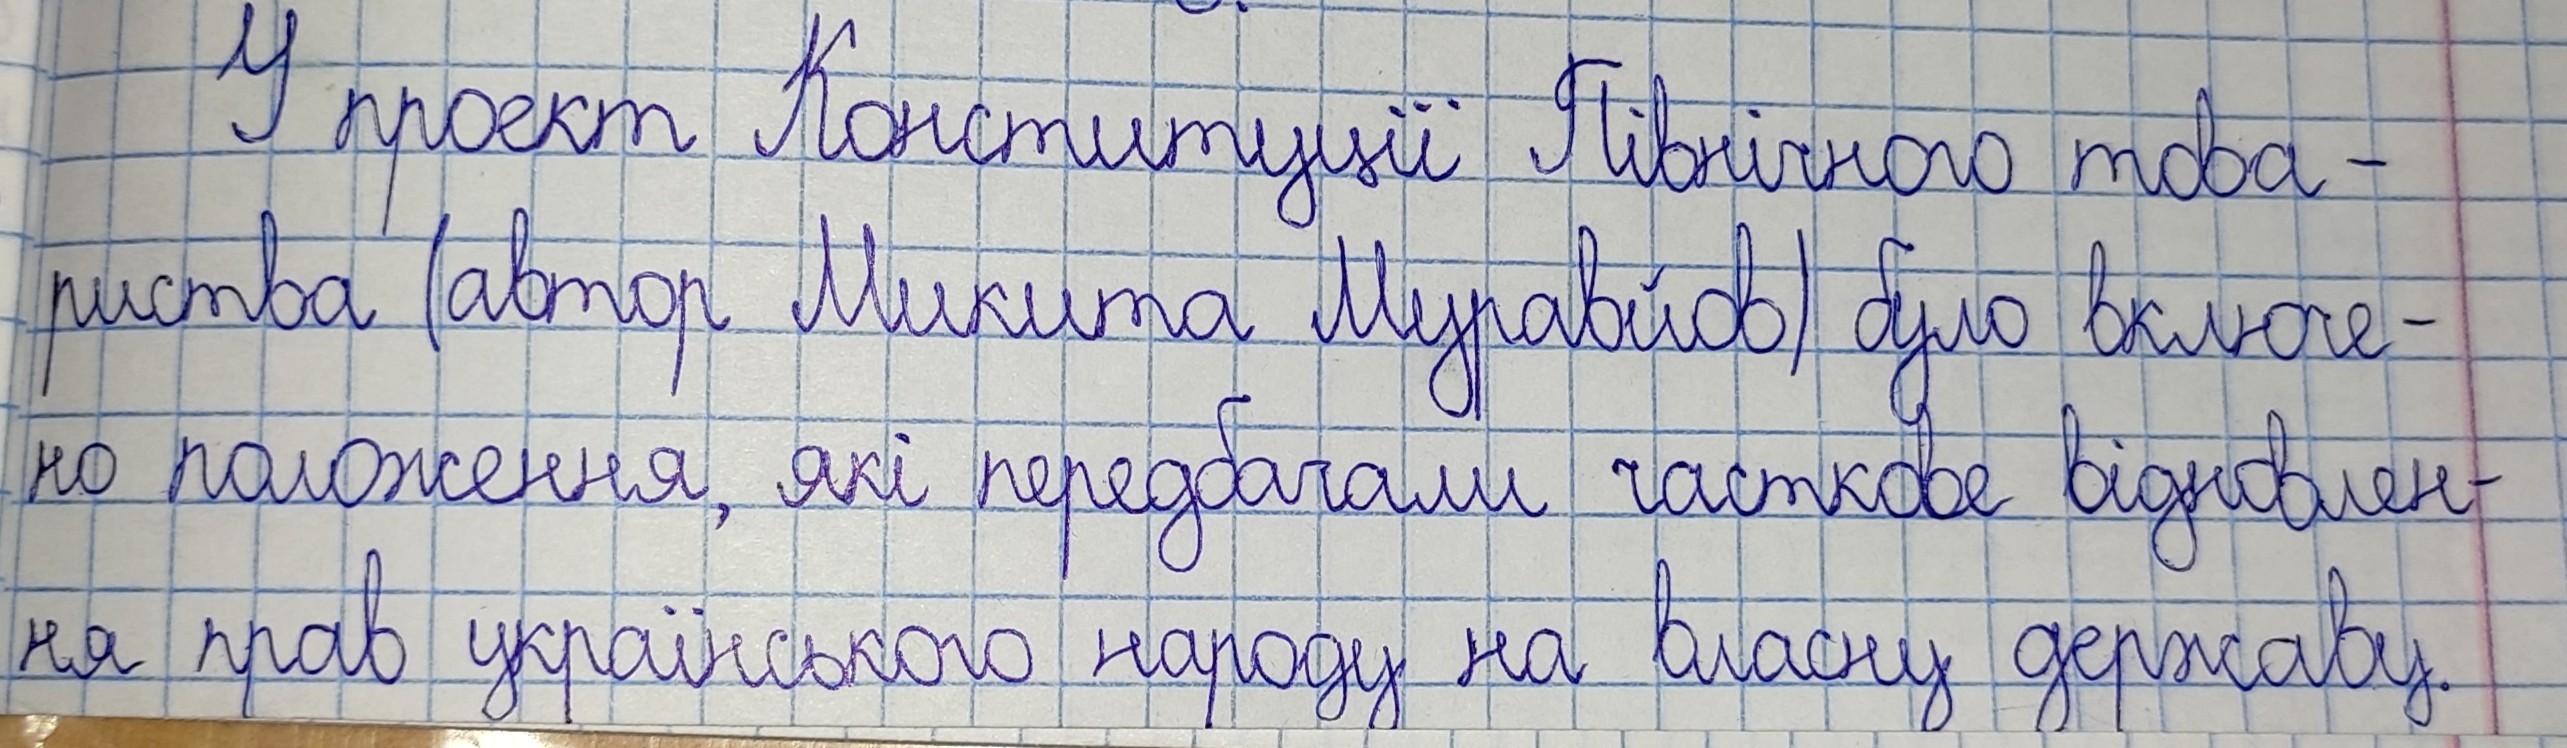 У проект Конституції Північного това-
риства (автор Микита Муравйов) було включе-
но положення, які передбачали часткове відновлен-
ня прав українського народу на власну державу.